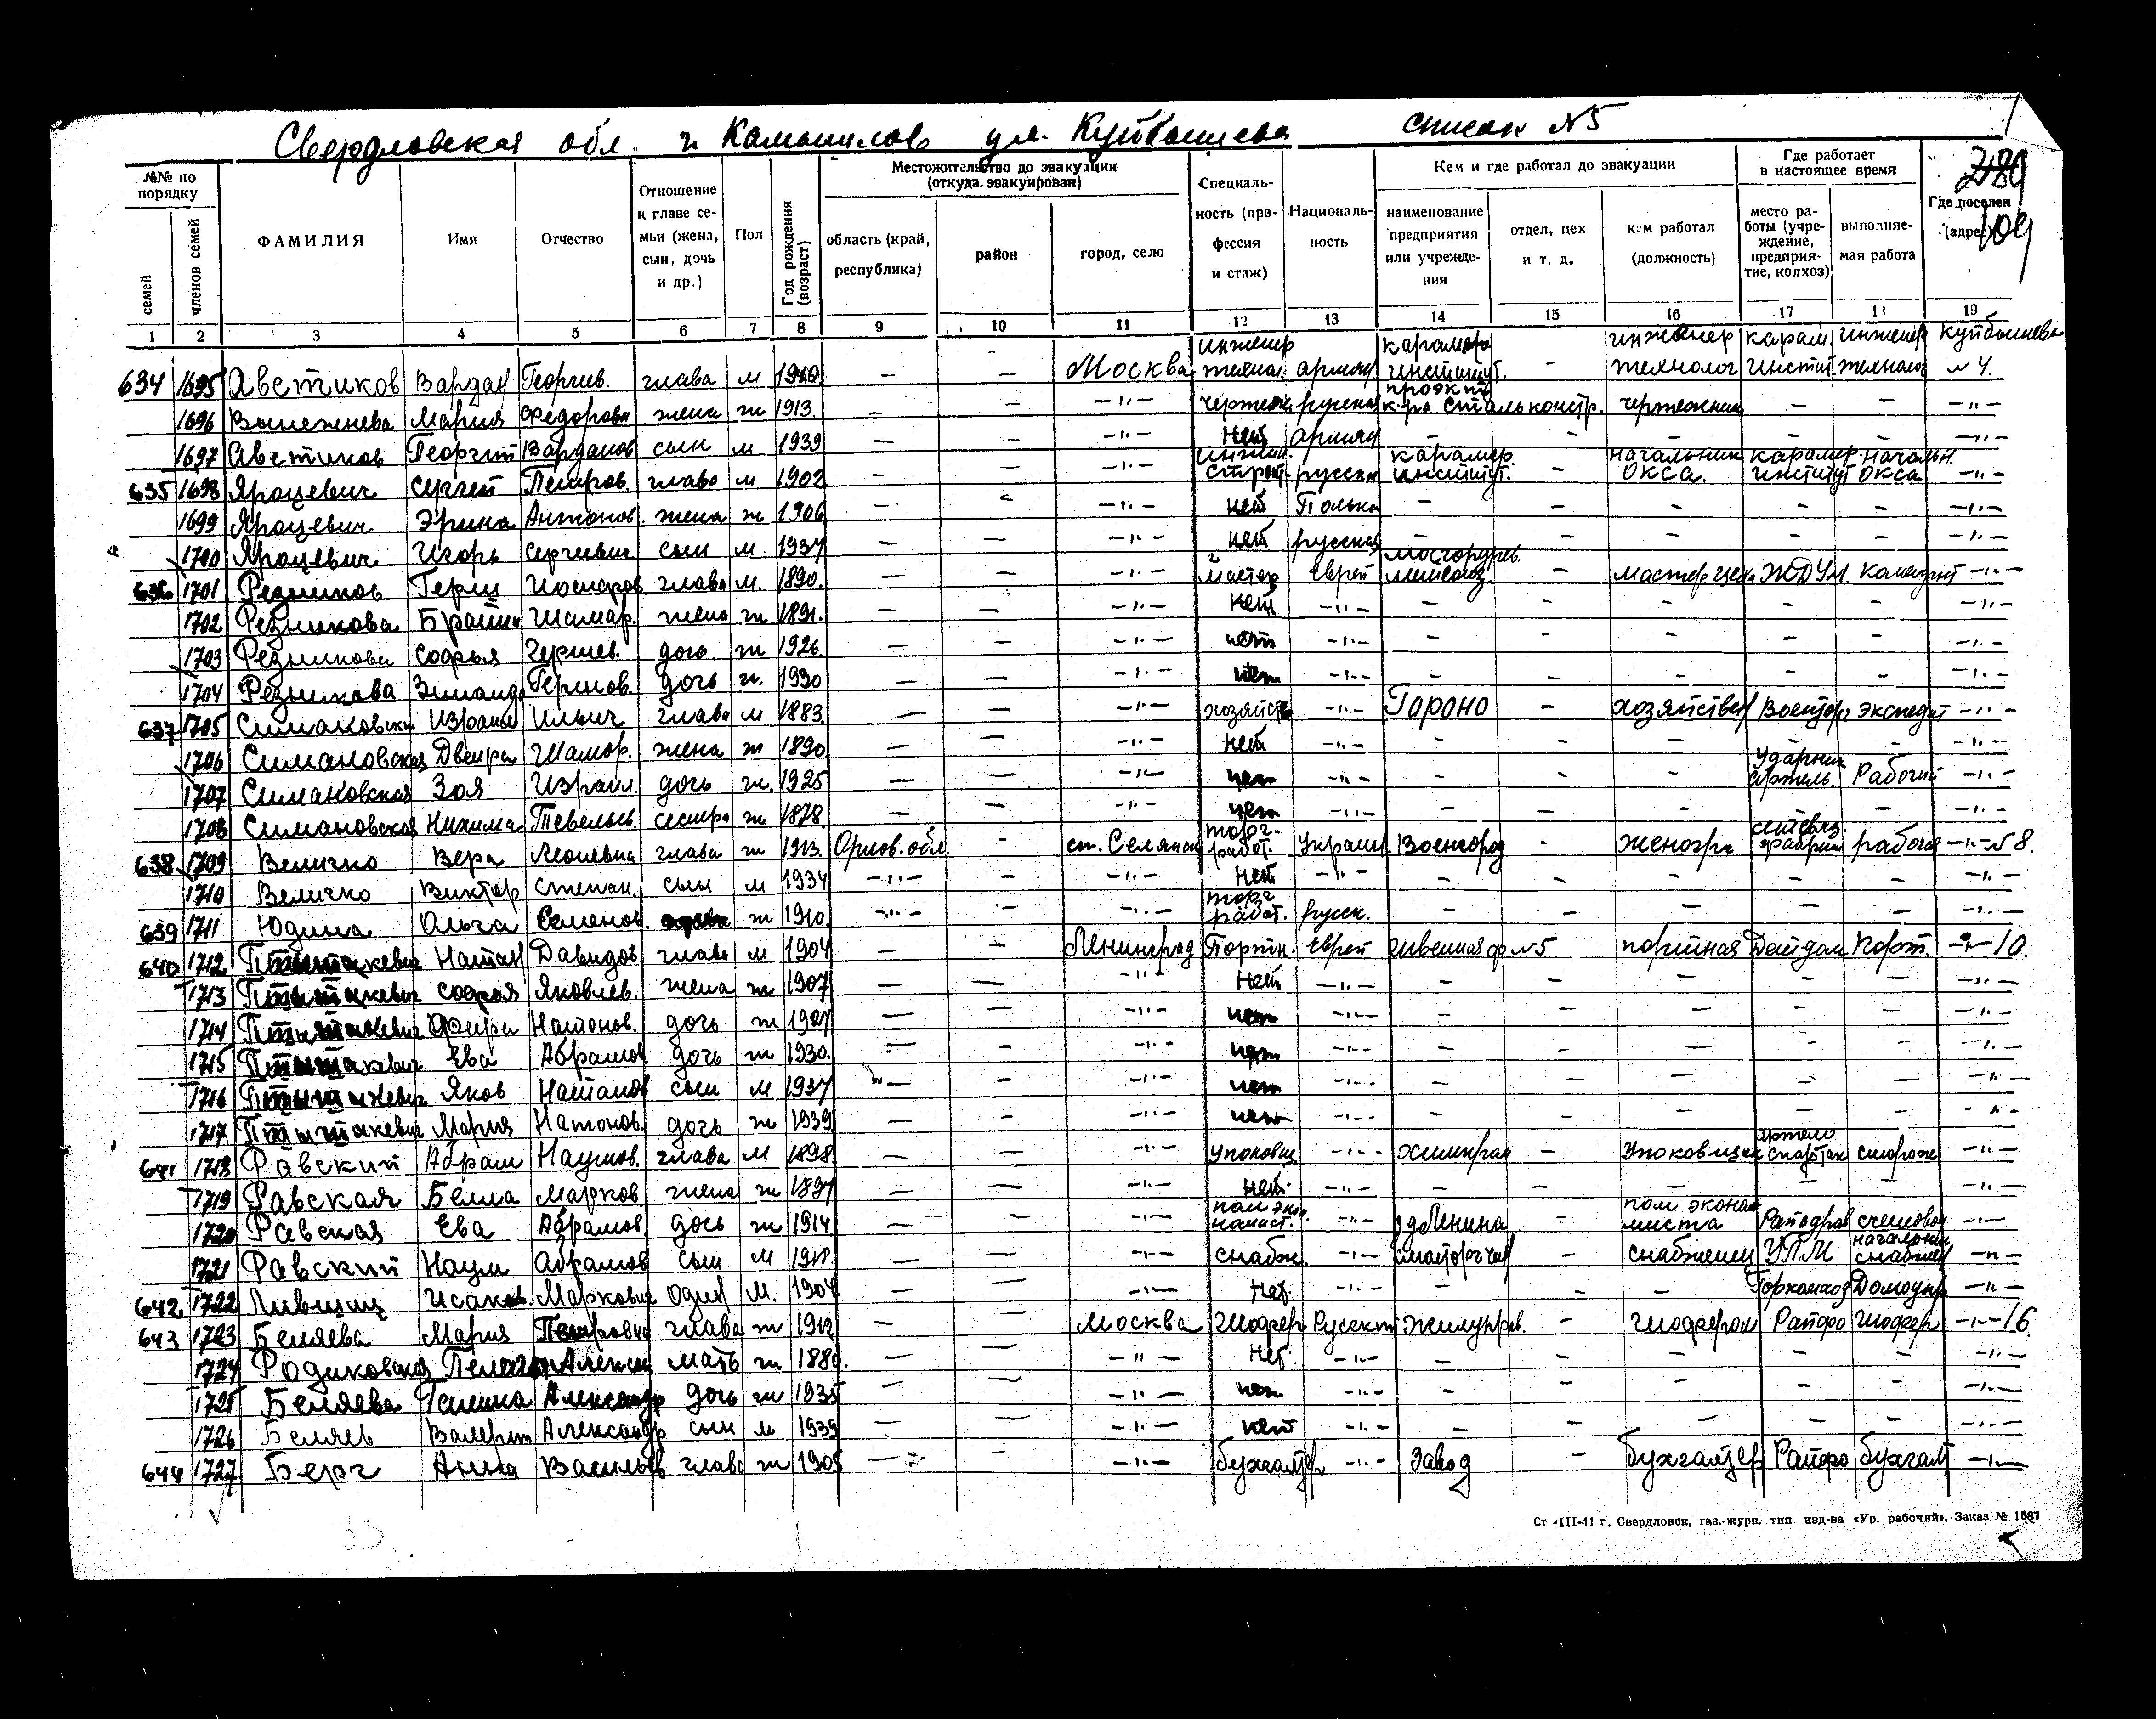 Свердловская обл. г. Камышлов ул. Куйбышева список №5
289
109
№№ по порядку
семей
членов семей
ФАМИЛИЯ
Имя
Отчество
Отношение к главе семьи (жена, сын, дочь и др.)
Пол
Год рождения (возраст)
Местожительство до эвакуации (откуда эвакуирован)
область (край, республика)
район
город, село
Специальность (профессия и стаж)
Национальность
Кем и где работал до эвакуации
наименование предприятия или учреждения
отдел, цех и т. д.
кем работал (должность)
Где работает в настоящее время
место работы (учреждение, предприятие, колхоз)
выполняемая работа
Где поселен (адрес)
1 2 3 4 5 6 7 8 9 10 11 12 13 14 15 16 17 18 19
634 1695 Аветиков Вардан Георгиев. глава м — — Москва инженер технол. армян. институт. — инженер технолог карам. инстит инженер технолог Куйбышева №4.
1696 Мария Федоровн жена ж 1913. — — —"— чертеж русская чертежник — — —"—
1697 Аветиков Георгий Варданов сын м 1939 — — —"— Нет армян — — — — — —"—
635 1698 Яроцевич Сергей Петров. глава м 1902 — — —"— инжен. строит. русский карамер. институт. — начальник ОКСа. карамер. институт начальн. ОКСа —"—
1699 Яроцевич Антонов. жена ж 1906 — — —"— нет Полька — — — — — —"—
1700 Яроцевич Игорь Сергеевич сын м. 1937 — — —"— нет русская — — — — — —"—
636 1701 Резников Герш глава м. 1890. — — —"— мастер Еврей — мастер цеха —"—
1702 Резникова Шамар. жена ж 1891. — — —"— нет —"— — — — — — —"—
1703 Резникова Софья Гершев. дочь ж 1926. — — —"— нет —"— — — — — — —"—
1704 Резникова Гершов. дочь ж. 1930 — — —"— нет —"— —"—
637 1705 Симановский Израиль Ильич глава м 1883. — — —"— хозяйств —"— Гороно — хозяйствен Военторг экспедит —"—
1706 Симановская Двейра Шамор. жена ж 1890 — — —"— Нет —"— — — — — — —"—
1707 Симановская Зоя Израил. дочь ж. 1925 — — —"— нет —"— — — — Ударник артель. Рабочий —"—
1708 Симановская Нихима Тевельев. сестра ж 1878. — — —"— нет —"— — — — — — —"—
638 1709 Величко Вера глава ж 1913. Орлов. обл. — торг. работ. Украин. Военторг — рабочая —"— №8.
1710 Величко Виктор Степан. сын м 1934 —"— — —"— Нет —"— — — — — — —"—
639 1711 Юдина Ольга Семенов. ж 1910. —"— — —"— торг. работ. русск. — — — — — —"—
640 1712 Натан Давидов глава м 1904 — — Ленинград Портн. Еврей швейная ф №5 портная Детдом Порт. —"— 10.
1713 Софья Яковлев. жена ж 1907 — — —"— Нет —"— — — — — — —"—
1714 Натонов. дочь ж — — —"— нет —"— — — — — — —"—
1715 Ева Абрамов дочь ж 1930. — — —"— нет —"— — — — — — —"—
1716 Яков Натанов сын м 1937 — — —"— нет —"— — — — — — —"—
1717 Мария Натонов. дочь ж 1939 — — —"— нет —"— — — — — — —"—
641 1718 Равский Абрам Наумов. глава м 1898 — — —"— упоковщ. —"— — упоковщик артель спартак сторож —"—
1719 Равская Белла Марков. жена ж 1897 — — —"— Нет. —"— — — — — — —"—
1720 Равская Ева Абрамов. дочь ж 1914. — — —"— —"— з-д Ленина — пом экономиста счетовод —"—
1721 Равский Наум Абрамов сын м — — —"— снабж. —"— — снабженец УПМ начальник снабжен —"—
642 1722 Лившиц Исаак. Маркович один м. 1904 — — —"— Нет. —"— — — — Горкомхоз Домоупр —"—
643 1723 Беляева Мария Петровна глава ж 1912 — — Москва Шофер Русский — шофером Райфо шофер —"— 16.
1724 мать ж — — —"— Нет. —"— — — — — — —"—
1725 Беляева Галина Александр дочь ж 1935 — — —"— нет —"— — — — — — —"—
1726 Беляев Валерий Александр сын м 1939 — — —"— нет —"— — — — — — —"—
644 1727 Берг Анна Васильев глава ж 1905 — — —"— бухгалтер —"— Завод — бухгалтер Райфо бухгалт —"—
Ст -III-41 г. Свердловск, газ.-журн. тип. изд-ва «Ур. рабочий». Заказ № 1587